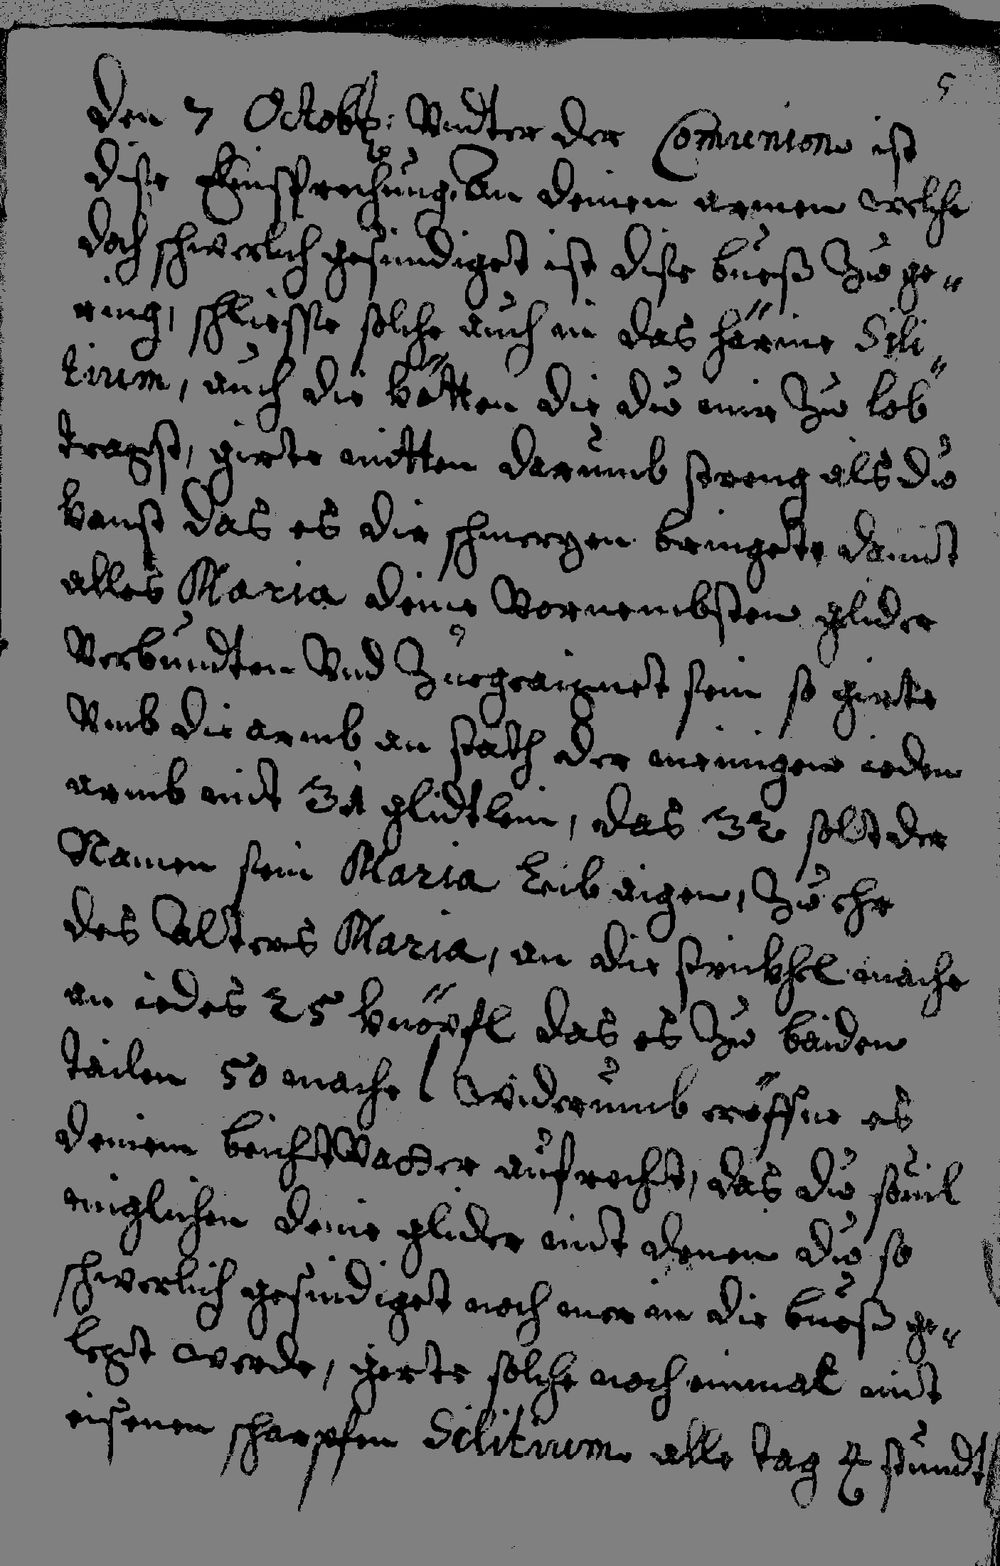 5
Den 7 Octobr: Vndter der Comunion ist
dise Einsprechung. An deinen armen welche
doch schwerlich gesündiget ist dise buess Zu ge„
ring, schliesse solche auch in das härine Sili„
tium, auch die Ketten die du mir Zu lob
tragst, girte mitten darumb streng als du
kanst das es dir schmerzen bringete damit
alles Maria deine Vornembsten glider
Verbundten Vnd Zuegeaignet sein so girte
Vmb die armb an stath der meinigen ieden
armb mit 31 glidtlein, das 32 solt der
Namen sein Maria leibaigen, Zu ehr
des Alters Maria, an die strickhel mache
an iedes 25 knöpfl das es Zu baiden
tailen 50 mache / widerumb eröffne es
deinem beichtVatter aufrecht, das du souil
miglichen deine glider mit denen du so
schwerlich gesündiget noch mer in die buess ge„
legt werde, gierte solche noch einmal mit
eisenen scharpfen Silitium alle tag 4 stundt